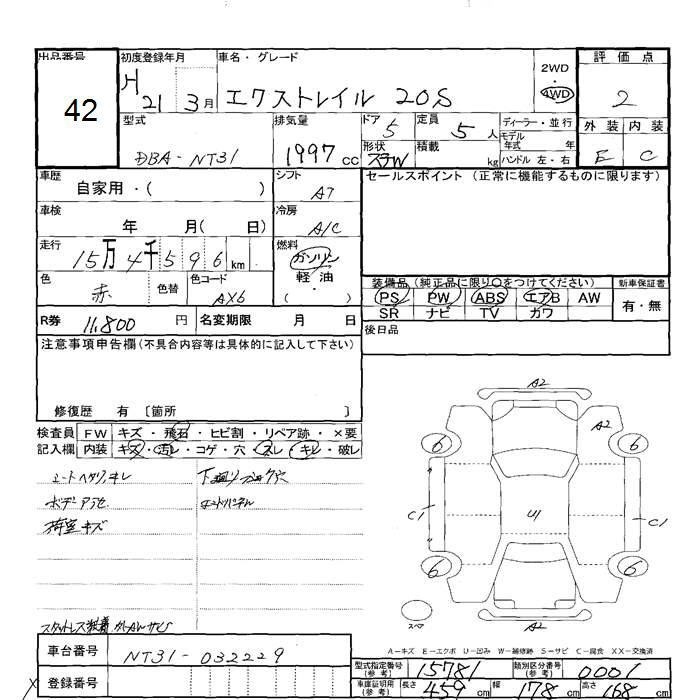 出品番号
42
初度登録年月
H 21 3月
車名・グレード
エクストレイル 20S
2WD
4WD
評価点
2
外装 内装
E C
型式
DBA-NT31
排気量
1997 cc
ドア 5
定員 5 人
ディーラー・並行
形状
積載 kg
モデル年式 年
ハンドル 左・右
車歴
自家用・( )
シフト
A7
セールスポイント (正常に機能するものに限ります)
車検
年 月( 日)
冷房
A/C
走行
15万4千596km
燃料
ガソリン
軽油
( )
色
赤
色替
色コード
AX6
装備品 (純正品に限り○をつけてください)
新車保証書
PS PW ABS エアB AW
有・無
SR ナビ TV カワ
R券 11,800 円
名変期限 月 日
後日品
注意事項申告欄(不具合内容等は具体的に記入して下さい)
修復歴 有 [箇所 ]
検査員 FW キズ・飛石・ヒビ割・リペア跡・×要
記入欄 内装 キズ・汚レ・コゲ・穴・スレ・キレ・破レ
シートヘタリ、キレ
ボデーアセ
荷室キズ
エンドパネル
A2
A2
6 6
C1 U1 C1
6 6
スペア
A2
A-キズ E-エクボ U-凹み W-補修跡 S-サビ C-腐食 XX-交換済
車台番号
NT31-032229
登録番号
型式指定番号 (参考) 15781
類別区分番号 (参考) 0001
車庫証明用 (参考) 長さ 459 cm 幅 178 cm 高さ 168 cm